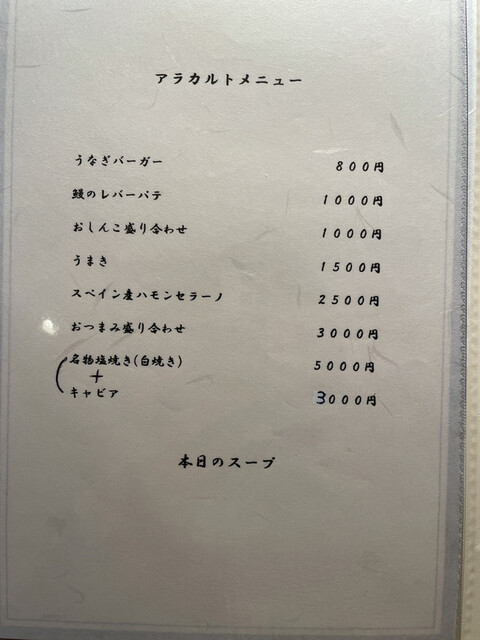 アラカルトメニュー
うなぎバーガー 800円
鰻のレバーパテ 1000円
おしんこ盛り合わせ 1000円
うまき 1500円
スペイン産ハモンセラーノ 2500円
おつまみ盛り合わせ 3000円
名物塩焼き(白焼き) 5000円
+
キャビア 3000円
本日のスープ